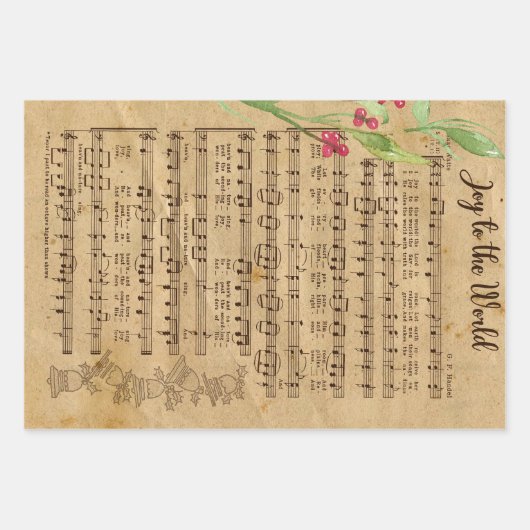 Joy to the World
G. F. Handel
1 Joy to the world! the Lord is come; Let earth re-ceive her
2 Joy to the world! the Sav-ior reigns; Let men their songs em-
3 He rules the world with truth and grace, And makes the na-tions
Let ev - ry heart pre - pare Him room, And
ploy; While fields and floods, rocks, hills and plains Re -
prove The glo - ries of His right - eous - ness, And
heav'n and na-ture sing, And heav'n and na-ture
peat the sounding joy, Re - peat the sound-ing
won-ders of His love, And won-ders of His
heav'n, and heav'n and na-ture sing.
sing, And heav'n, and heav'n and na-ture sing
joy, Re - peat, re - peat the sound-ing joy
love, And won-ders, and won - ders of His love.
heav'n and na-ture sing,
*Tenor: part to be read an octave higher than shown